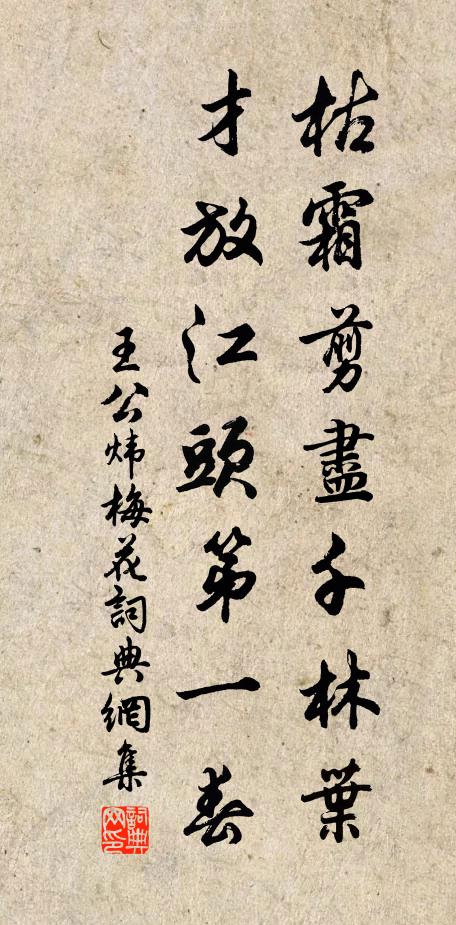 枯霜剪盡千林葉
才放江頭第一春
王公炜梅花詞典網集
詞典网印